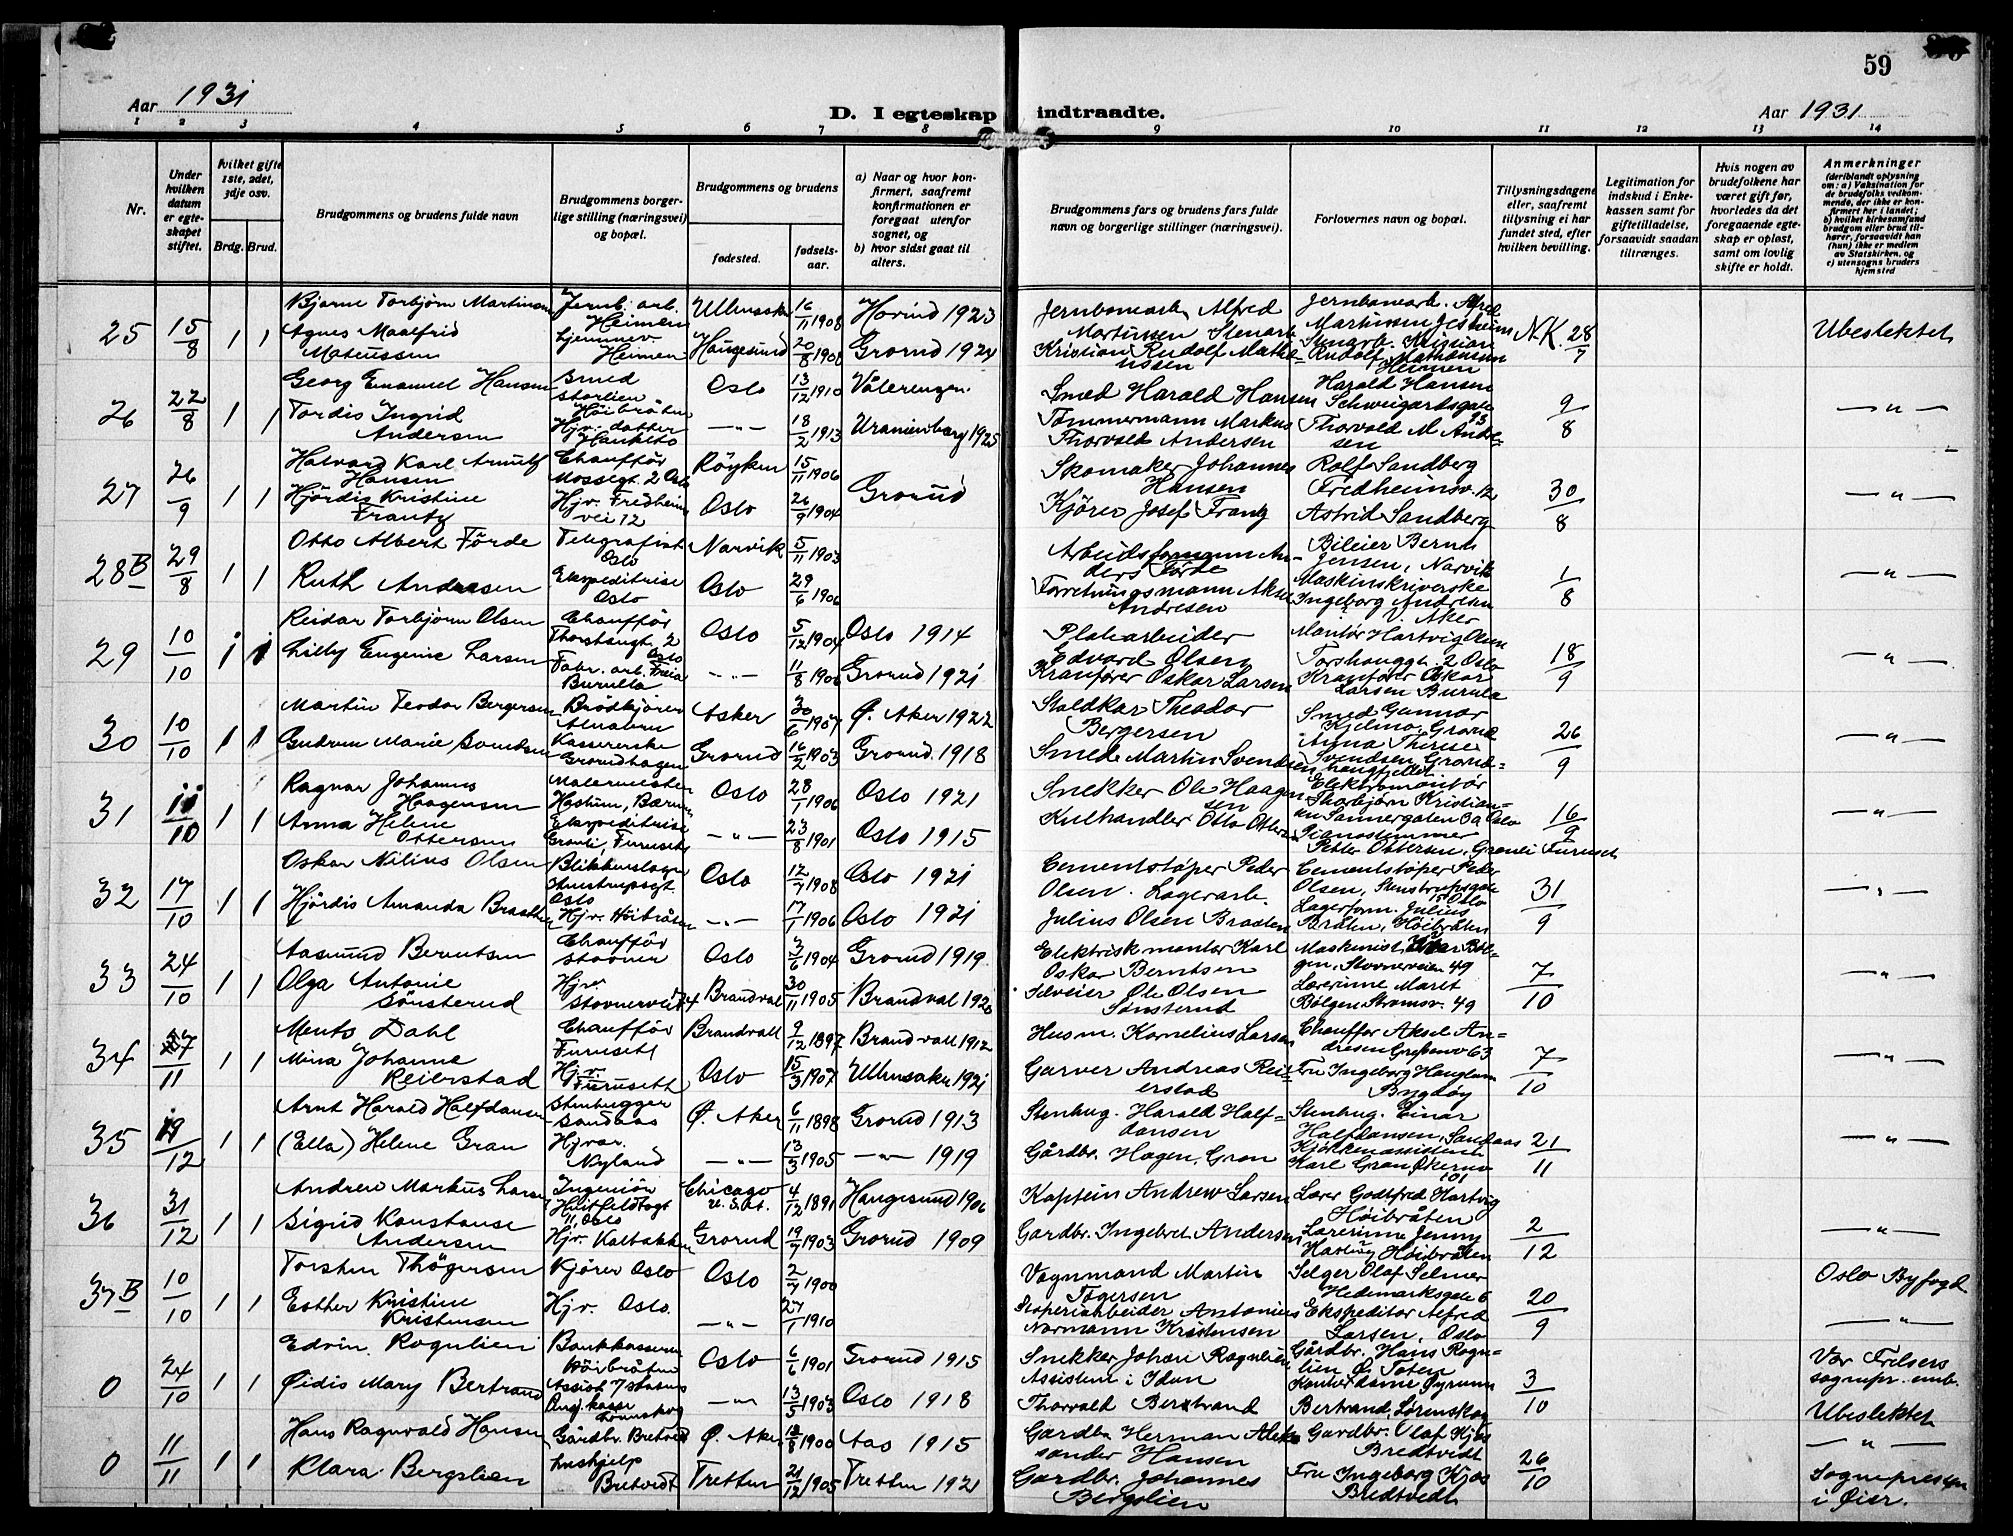 59
Aar 1931
D. I egteskap indtraadte.
Aar 1931
1 2 3 4 5 6 7 8 9 10 11 12 13 14
Nr.
Under hvilken datum er egteskapet stiftet.
Hvilket gifte 1ste, 2det, 3dje osv.
Brdg. Brud.
Brudgommens og brudens fulde navn
Brudgommens borgerlige stilling (næringsvei) og bopæl.
Brudgommens og brudens
fødested.
fødselsaar.
a) Naar og hvor konfirmert, saafremt konfirmationen er foregaat utenfor sognet, og
b) hvor sidst gaat til alters.
Brudgommens fars og brudens fars fulde navn og borgerlige stillinger (næringsvei).
Forlovernes navn og bopæl.
Tillysningsdagene eller, saafremt tillysning ei har fundet sted, efter hvilken bevilling.
Legitimation for indskud i Enkekassen samt for giftetilladelse, forsaavidt saadan tiltrænges.
Hvis nogen av brudefolkene har været gift før, hvorledes da det foregaaende egteskap er opløst, samt om lovlig skifte er holdt.
Anmerkninger
(deriblandt oplysning om: a) Vaksination for de brudefolks vedkommende, der ikke er konfirmert her i landet; b) hvilket kirkesamfund brudgom eller brud tilhører, forsaavidt han (hun) ikke er medlem av Statskirken, og c) utensogns bruders hjemsted
25 15/8 1 1 Bjarne Torbjørn Martinsen Jernb. arb. Heimen Ullensaker 16/11 1908 Hovind 1923 Jernbanearb. Alfred Martinsen Jernbanearb. Alfred Martinsen Jesheim N.K. 28/7 Ubeslektet
Agnes Maalfrid Mateussen Heimen Haugesund 20/8 1908 Grorud 1924 Stenarb. Kristian Rudolf Mateussen Stenarb. Kristian Rudolf Mateussen Heimen
26 22/8 1 1 Georg Emanuel Hansen Smed Oslo 13/12 1910 Vålerengen Smed Harald Hansen Harald Hansen Schweigaardsgate 93 9/8 —"—
Tordis Ingrid Andersen Hjv. datter Hauketo —"— 18/2 1913 Uranienborg 1925 Tømmermann Markus Thorvald Andersen Thorvald M Andersen
27 26/9 1 1 Halvard Karl Arnulf Hansen Chauffør Mossegt. 2 Oslo Røyken 15/11 1906 Grorud Skomaker Johannes Hansen Rolf Sandberg Fredheimsv. 12 30/8 —"—
Hjørdis Kristine Frantz Hjv. Fredheimvei 12 Oslo 26/9 1904 Kjører Josef Frantz Astrid Sandberg
28B 29/8 1 1 Otto Albert Förde Telegrafist Oslo Narvik 5/11 1903 Arbeidsformann Anders Förde Bileier Bernt Jensen, Narvik 1/8 —"—
Ruth Andresen Ekspeditrise Oslo Oslo 29/6 1906 Forretningsmann Aksel Andresen Maskinskriverske Ingeborg Andresen V. Aker
29 10/10 1 1 Reidar Torbjørn Olsen Chauffør Thorshauggt. 2 Oslo Oslo 5/12 1904 Oslo 1914 Platearbeider Edvard Olsen Montør Hartvig Olsen Torshauggt. 2 Oslo 18/9 —"—
Lilly Eugenie Larsen Fabr. arb. Freia —"— 11/8 1906 Grorud 1921 Kranfører Oskar Larsen Kranfører Oskar Larsen
30 10/10 1 1 Martin Teodor Bergersen Brødkjører Alnabru Asker 30/6 1907 Ø. Aker 1922 Staldkar Theodor Bergersen Smed Gunnar Kjelmo, Grorud 26/9 —"—
Gudrun Marie Svendsen Kassererske Grorudhagen Grorud 16/2 1903 Grorud 1918 Smed Martin Svendsen Anna Therese Svendsen
31 11/10 1 1 Ragnar Johannes Haagensen Malermester Haslum, Bærum Oslo 28/1 1906 Oslo 1921 Snekker Ole Haagensen Elektromontør Thorbjørn Kristiansen Sannergaten Oslo 16/9 —"—
Anna Helene Ottersen Ekspeditrise Granli, Furuset —"— 23/8 1901 Oslo 1915 Kulhandler Otto Ottersen Pianostemmer Ottersen, Granli Furuset
32 17/10 1 1 Oskar Nilius Olsen Blikkenslager Stenstrupsgt. Oslo Oslo 12/7 1908 Oslo 1921 Cementstøper Peder Olsen. Cementstøper Peder Olsen, Stenstrupsgate Oslo 31/9 —"—
Hjørdis Amanda Braathen Hjv. Høibråten —"— 17/1 1906 Oslo 1921 Lagerarb. Julius Olsen Braaten Lagerform. Julius Bråten, Høibråten
33 24/10 1 1 Aasmund Berntsen Chauffør Stovner Oslo 3/6 1904 Grorud 1919 Elektriskmontør Karl Oskar Berntsen Maskinist Bølgen, Stovnerveien 49 7/10 —"—
Olga Antonie Sönsterud Hjv. Brandval 30/11 1905 Brandval 1920 Selveier Ole Olsen Sønsterud Lærerinne Marit Bølgen Strømsv. 49
34 27/11 1 1 Ments Dahl Chauffør Furusett Brandvall 9/12 1897 Brandvall 1912 Husm. Kornelius Larsen Chauffør Aksel Andresen Grefsenv 63 7/10 —"—
Mina Johanne Reierstad Hjv. Furusett Oslo 15/3 1907 Ullensaker 1921 Garver Andreas Reierstad Fru Ingeborg Haugland Bygdøy
35 19/12 1 1 Arnt Harald Halfdansen Stenhugger Sandaas Ø. Aker 6/11 1898 Grorud 1913 Stenhug. Harald Halfdansen Stenhug. Einar Halfdansen, Sandaas 21/11 —"—
(Ella) Helene Gran Hjvar. Nyland —"— 13/3 1905 —"— 1919 Gårdbr. Hagen, Gran Kjøkkenassistent Karl Gran, Økernv 101
36 31/12 1 1 Andrew Markus Larsen Ingeniør Huitfeldtsgt 11, Oslo Chicago U.S.A. 4/12 1891 Haugesund 1906 Kaptein Andrew Larsen Lærer Godtfred Hartvig Høibråten 2/12 —"—
Sigrid Konstanse Andersen Hjv. Kalbakken Grorud 19/7 1903 Grorud 1909 Gardbr. Ingebret Andersen Lærerinne Jenny Hartvig Høibråten
37B 10/10 1 1 Torsten Thögersen Kjører Oslo Oslo 2/7 1900 Vognmand Martin Tøgersen Selger Olaf Selmer Hedemarksgate 6 20/9 Oslo Byfogd
Esther Kristine Kristensen Hjv. Oslo. —"— 27/1 1910 Støperiarbeider Antonius Normann Kristensen Ekspeditør Alfred Larsen, Oslo —"—
0 24/10 1 1 Edvin Rognlien Bankkasserer Høibråten Oslo 6/6 1901 Grorud 1915 Snekker Johan Rognlien Gårdbr. Hans Rognlien Ø. Toten 3/10 Vor Frelsers sognepr. emb.
Øidis Mary Bertrand Assist. —"— 13/5 1903 Oslo 1918 Assistent i Iden Thorvald Bertrand Kontordame Gyrunn Bertrand, Lørenskog Ubeslektet
0 11/11 1 1 Hans Ragnvald Hansen Gårdbr. Bretvedt Ø. Aker 13/8 1900 Aas 1915 Gardbr. Herman Aleksander Hansen Gardbr. Olaf Kjos Bredtvedt 26/10 —"—
Klara Bergslien Hushjelp Bretvedt Tretten 21/12 1905 Tretten 1921 Gardbr. Johannes Bergslien Fru Ingeborg Kjos Bredtvedt Sognepresten i Øier.